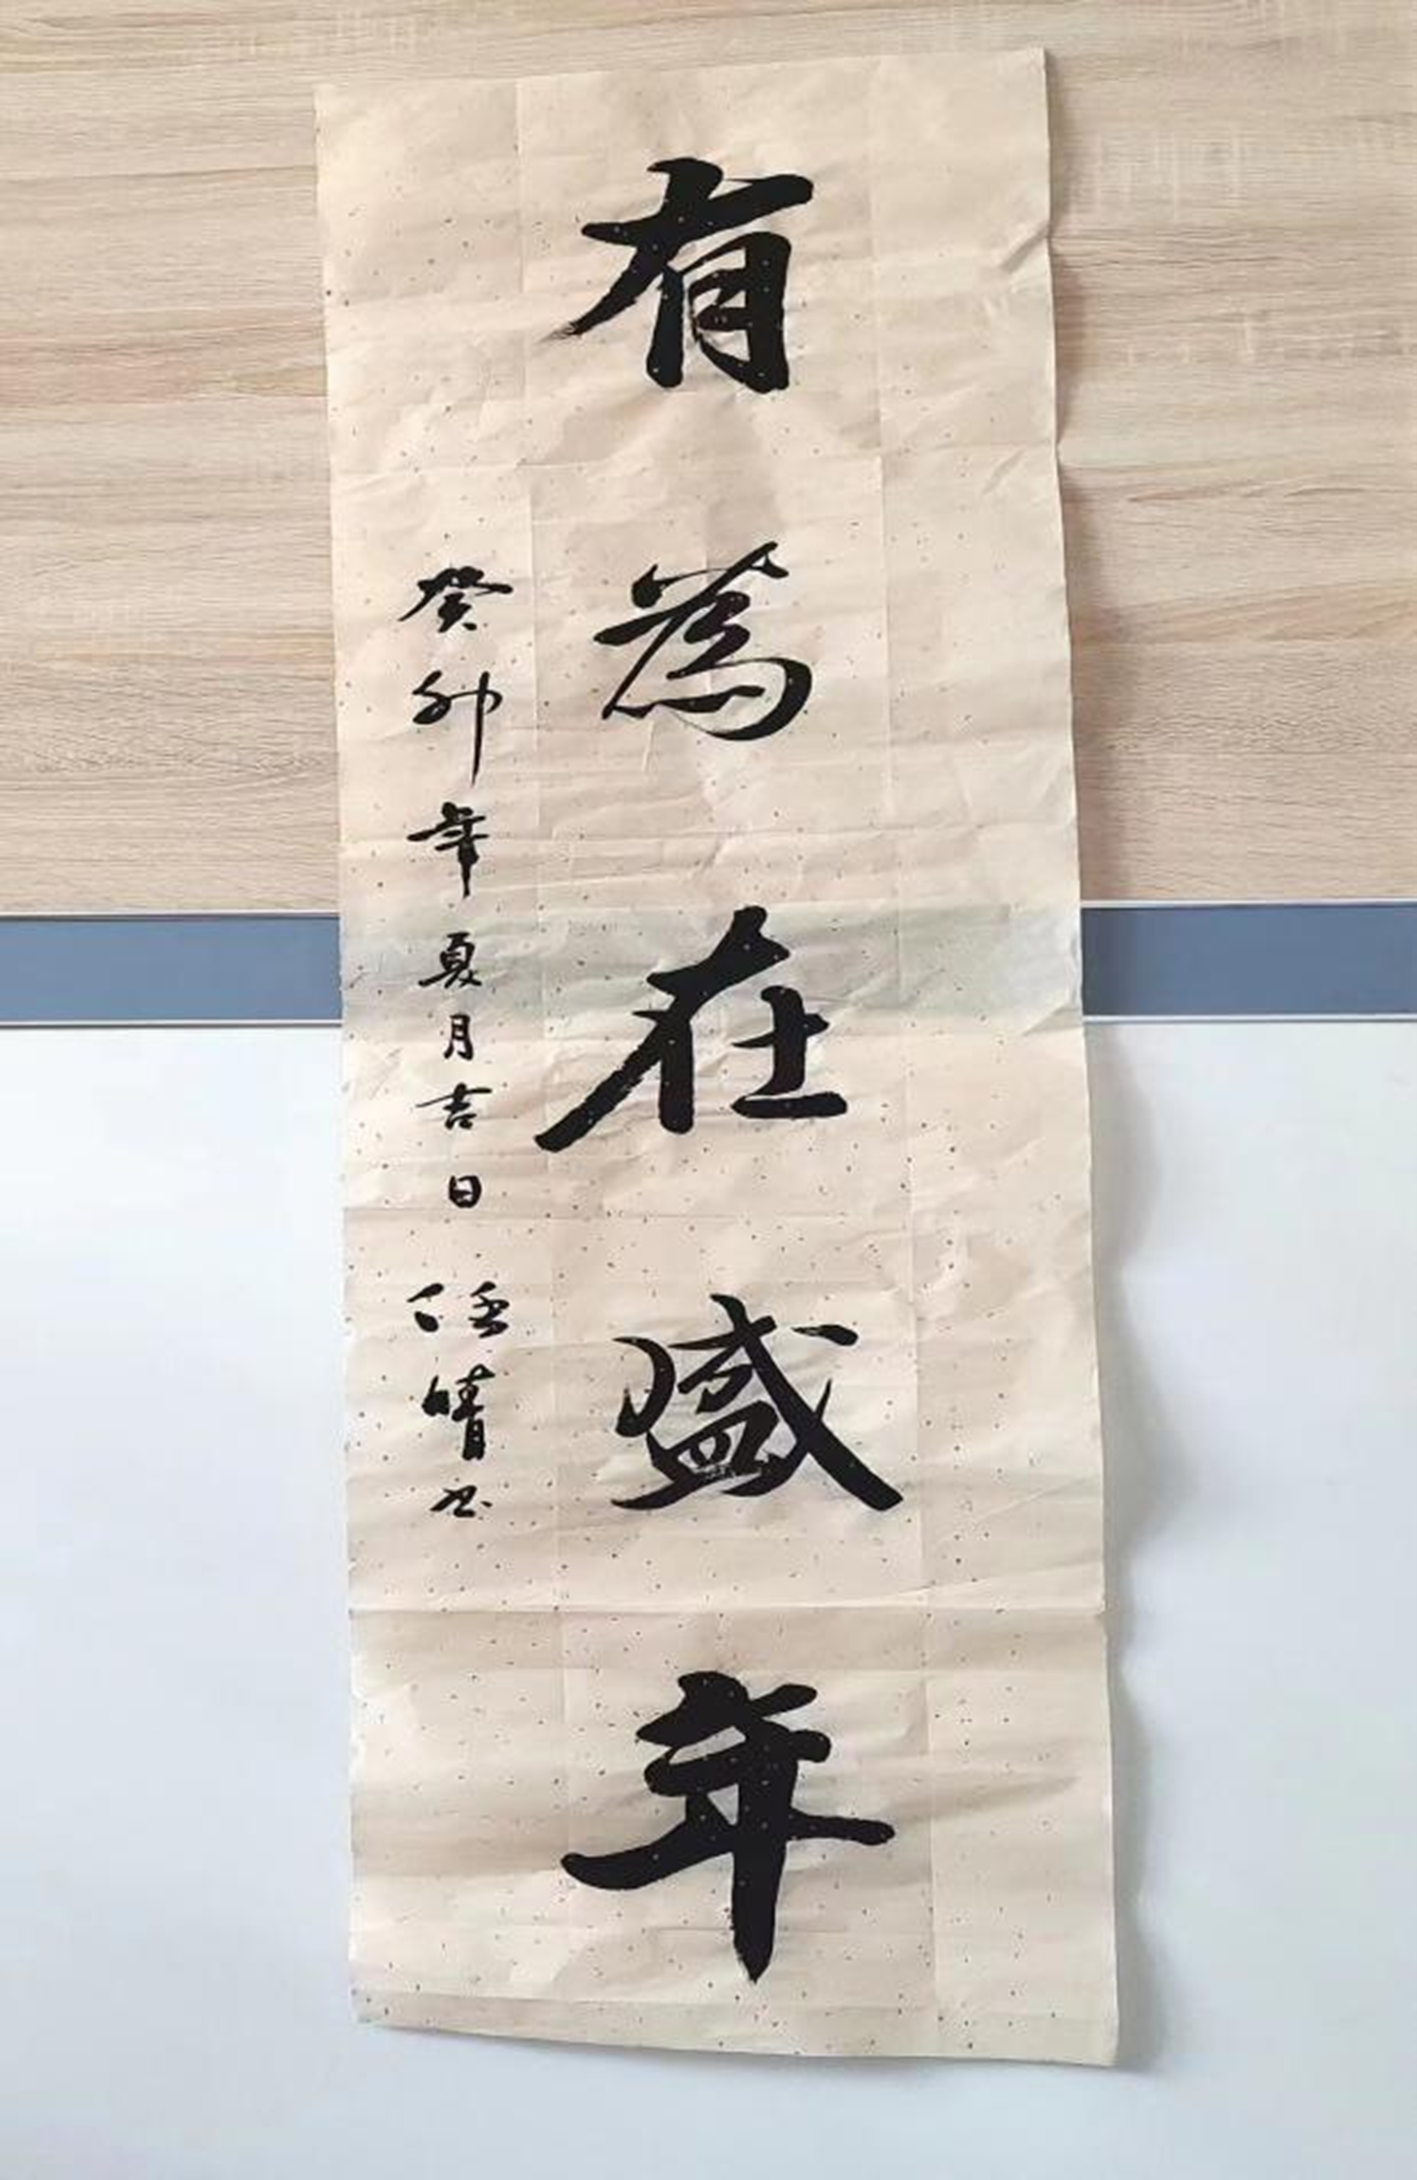 有為在盛年
癸卯年夏月吉日 晴书